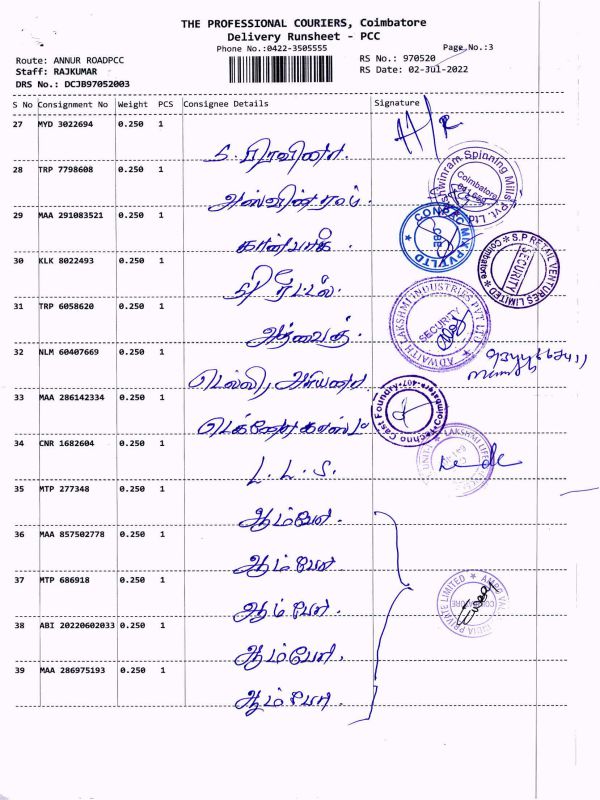 THE PROFESSIONAL COURIERS, Coimbatore
Delivery Runsheet - PCC
Phone No.:0422-3505555
Page No.:3
Route: ANNUR ROADPCC
RS No.: 970520
Staff: RAJKUMAR
RS Date: 02-Jul-2022
DRS No.: DCJB97052003
S No Consignment No Weight PCS Consignee Details Signature
27 MYD 3022694 0.250 1
28 TRP 7798608 0.250 1
அஸ்வின்ராம்.
29 MAA 291083521 0.250 1
30 KLK 8022493 0.250 1
31 TRP 6058620 0.250 1
அத்வைத்
32 NLM 60407669 0.250 1
33 MAA 286142334 0.250 1
34 CNR 1682604 0.250 1
L. L. S.
35 MTP 277348 0.250 1
ஆம்போ.
36 MAA 857502778 0.250 1
ஆம்போ.
37 MTP 686918 0.250 1
ஆம்போ.
38 ABI 20220602033 0.250 1
ஆம்போ.
39 MAA 286975193 0.250 1
ஆம்போ.
Spinning Mills Pvt. Ltd
Coimbatore
CONPAC MIX PVT LTD
CBE
S.P RETAIL VENTURES LIMITED
SECURITY
Coimbatore
ADWAITH LAKSHMI INDUSTRIES PVT LTD
SECURITY
Techno Cast Foundry
Coimbatore-407
PRIVATE LIMITED